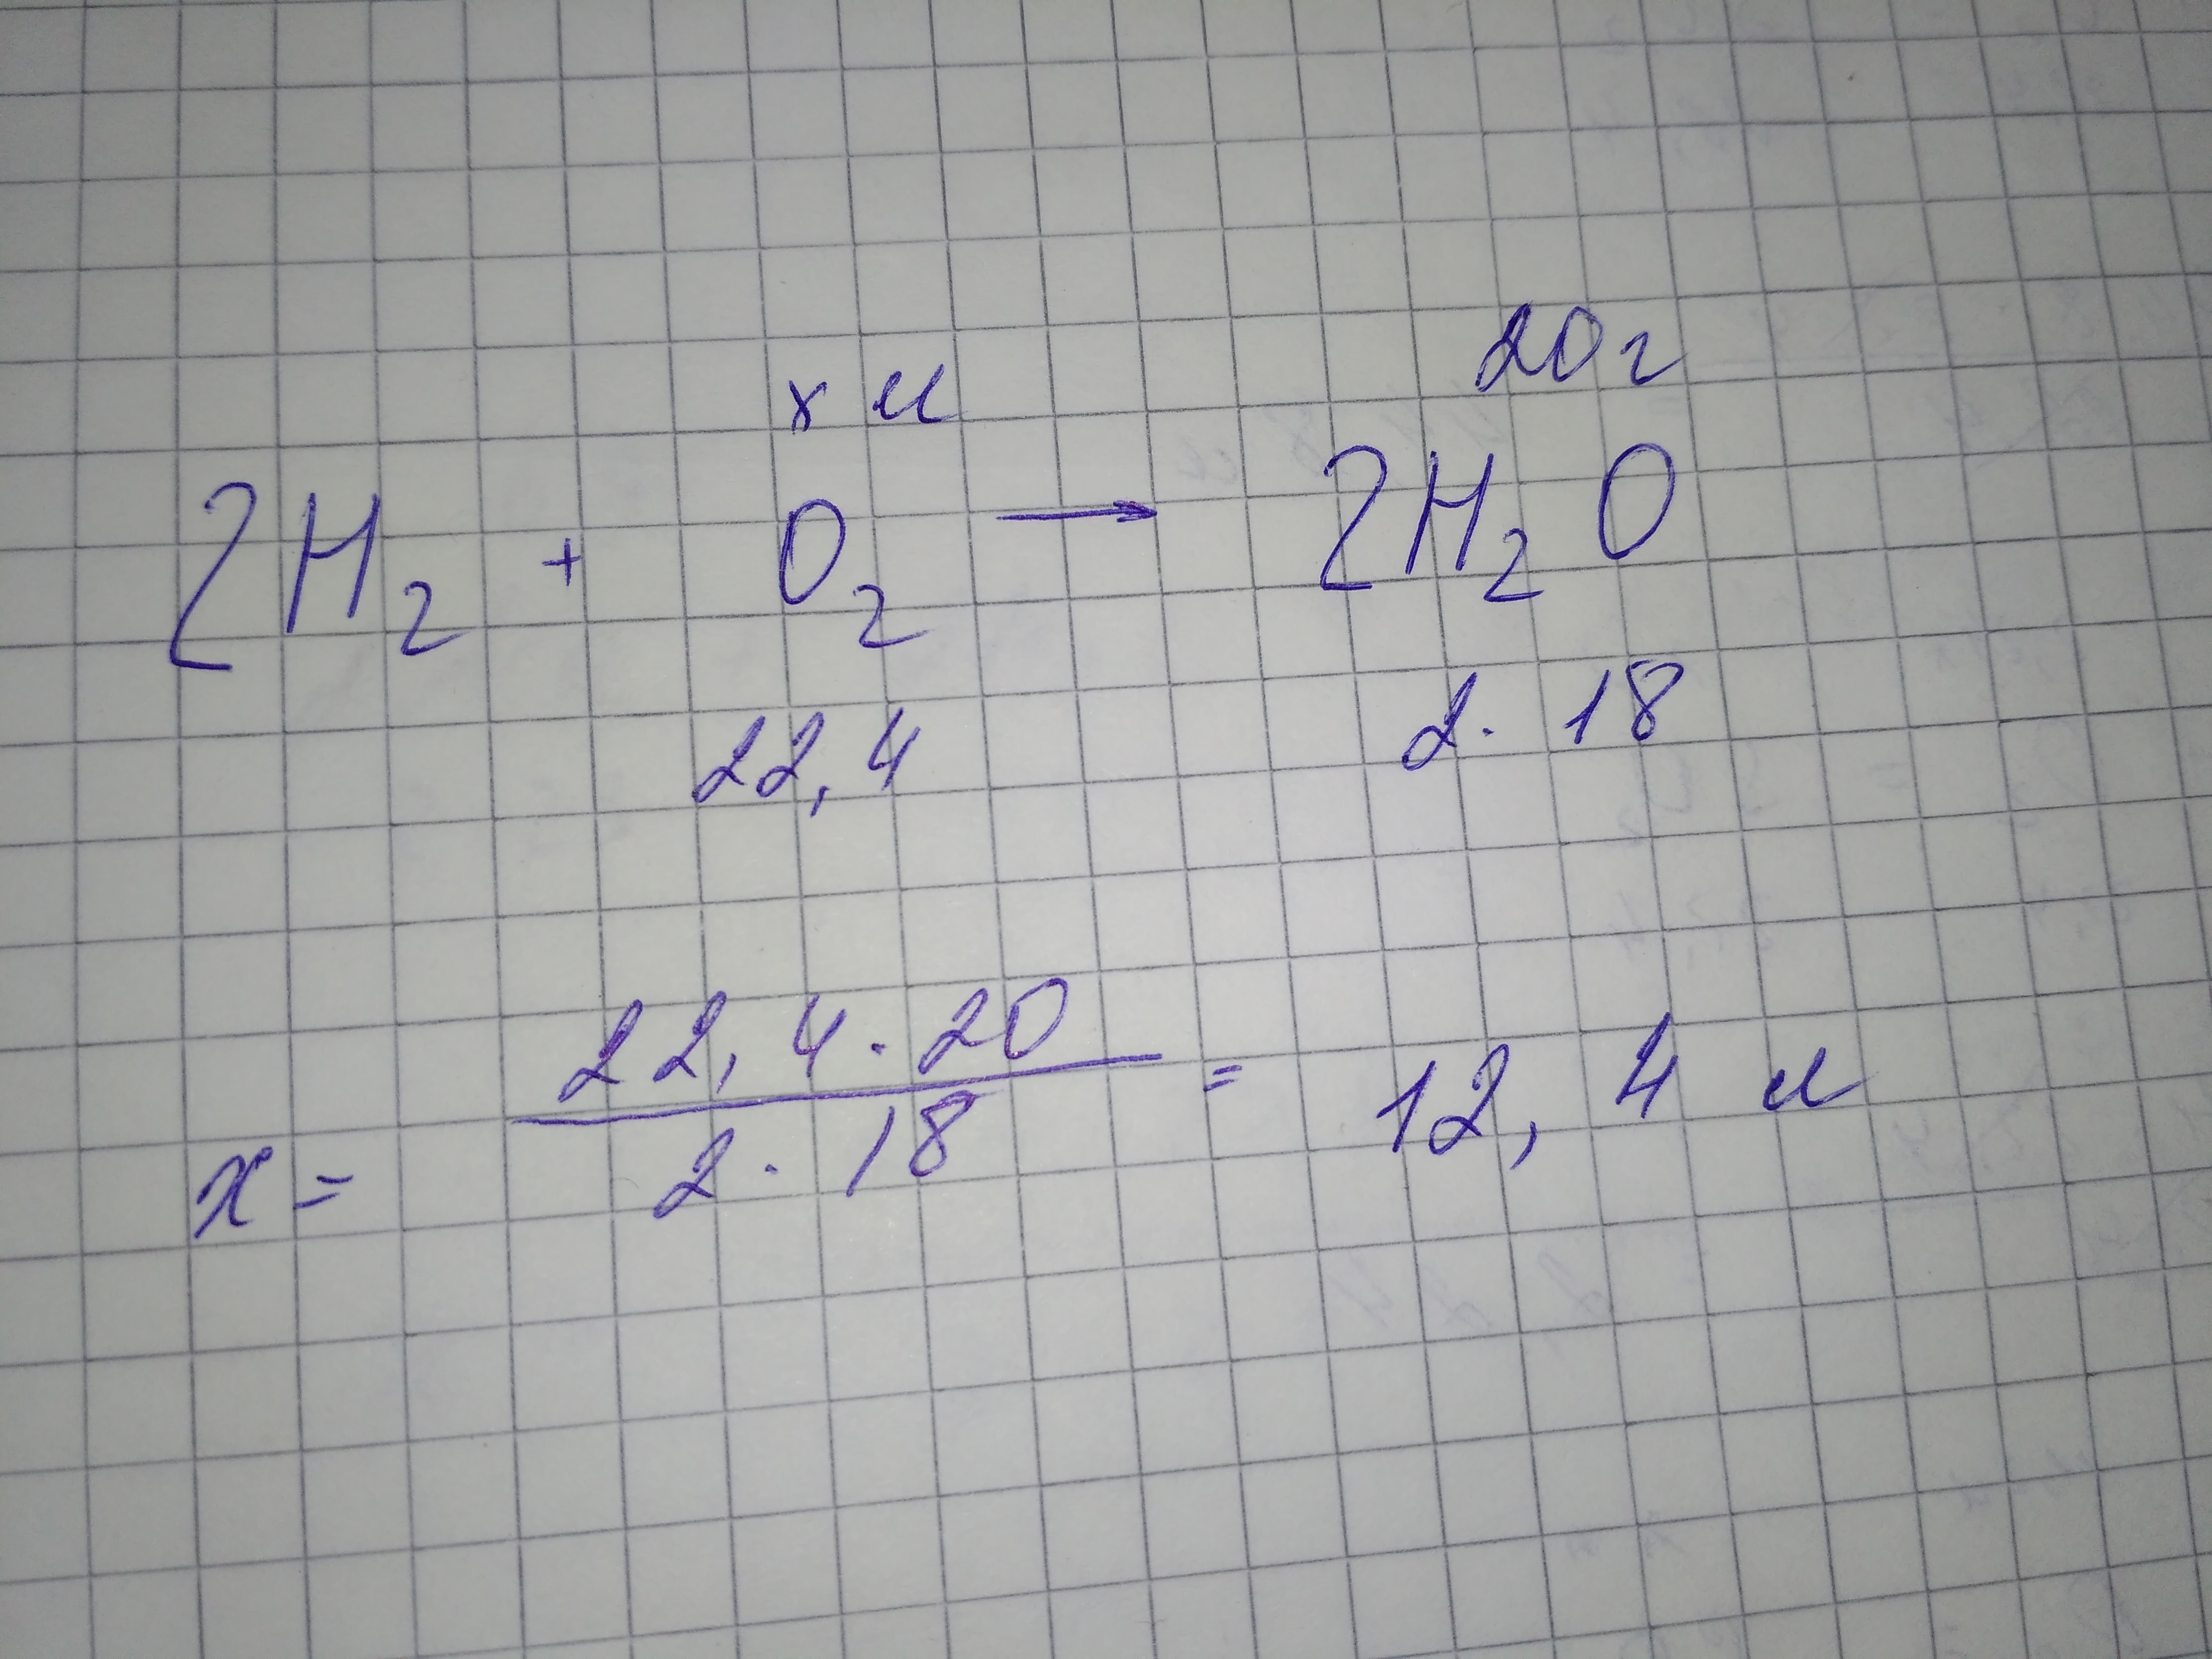 x л 20 г
2H₂ + O₂ → 2H₂O
22,4 2·18
x = (22,4·20)/(2·18) = 12,4 л